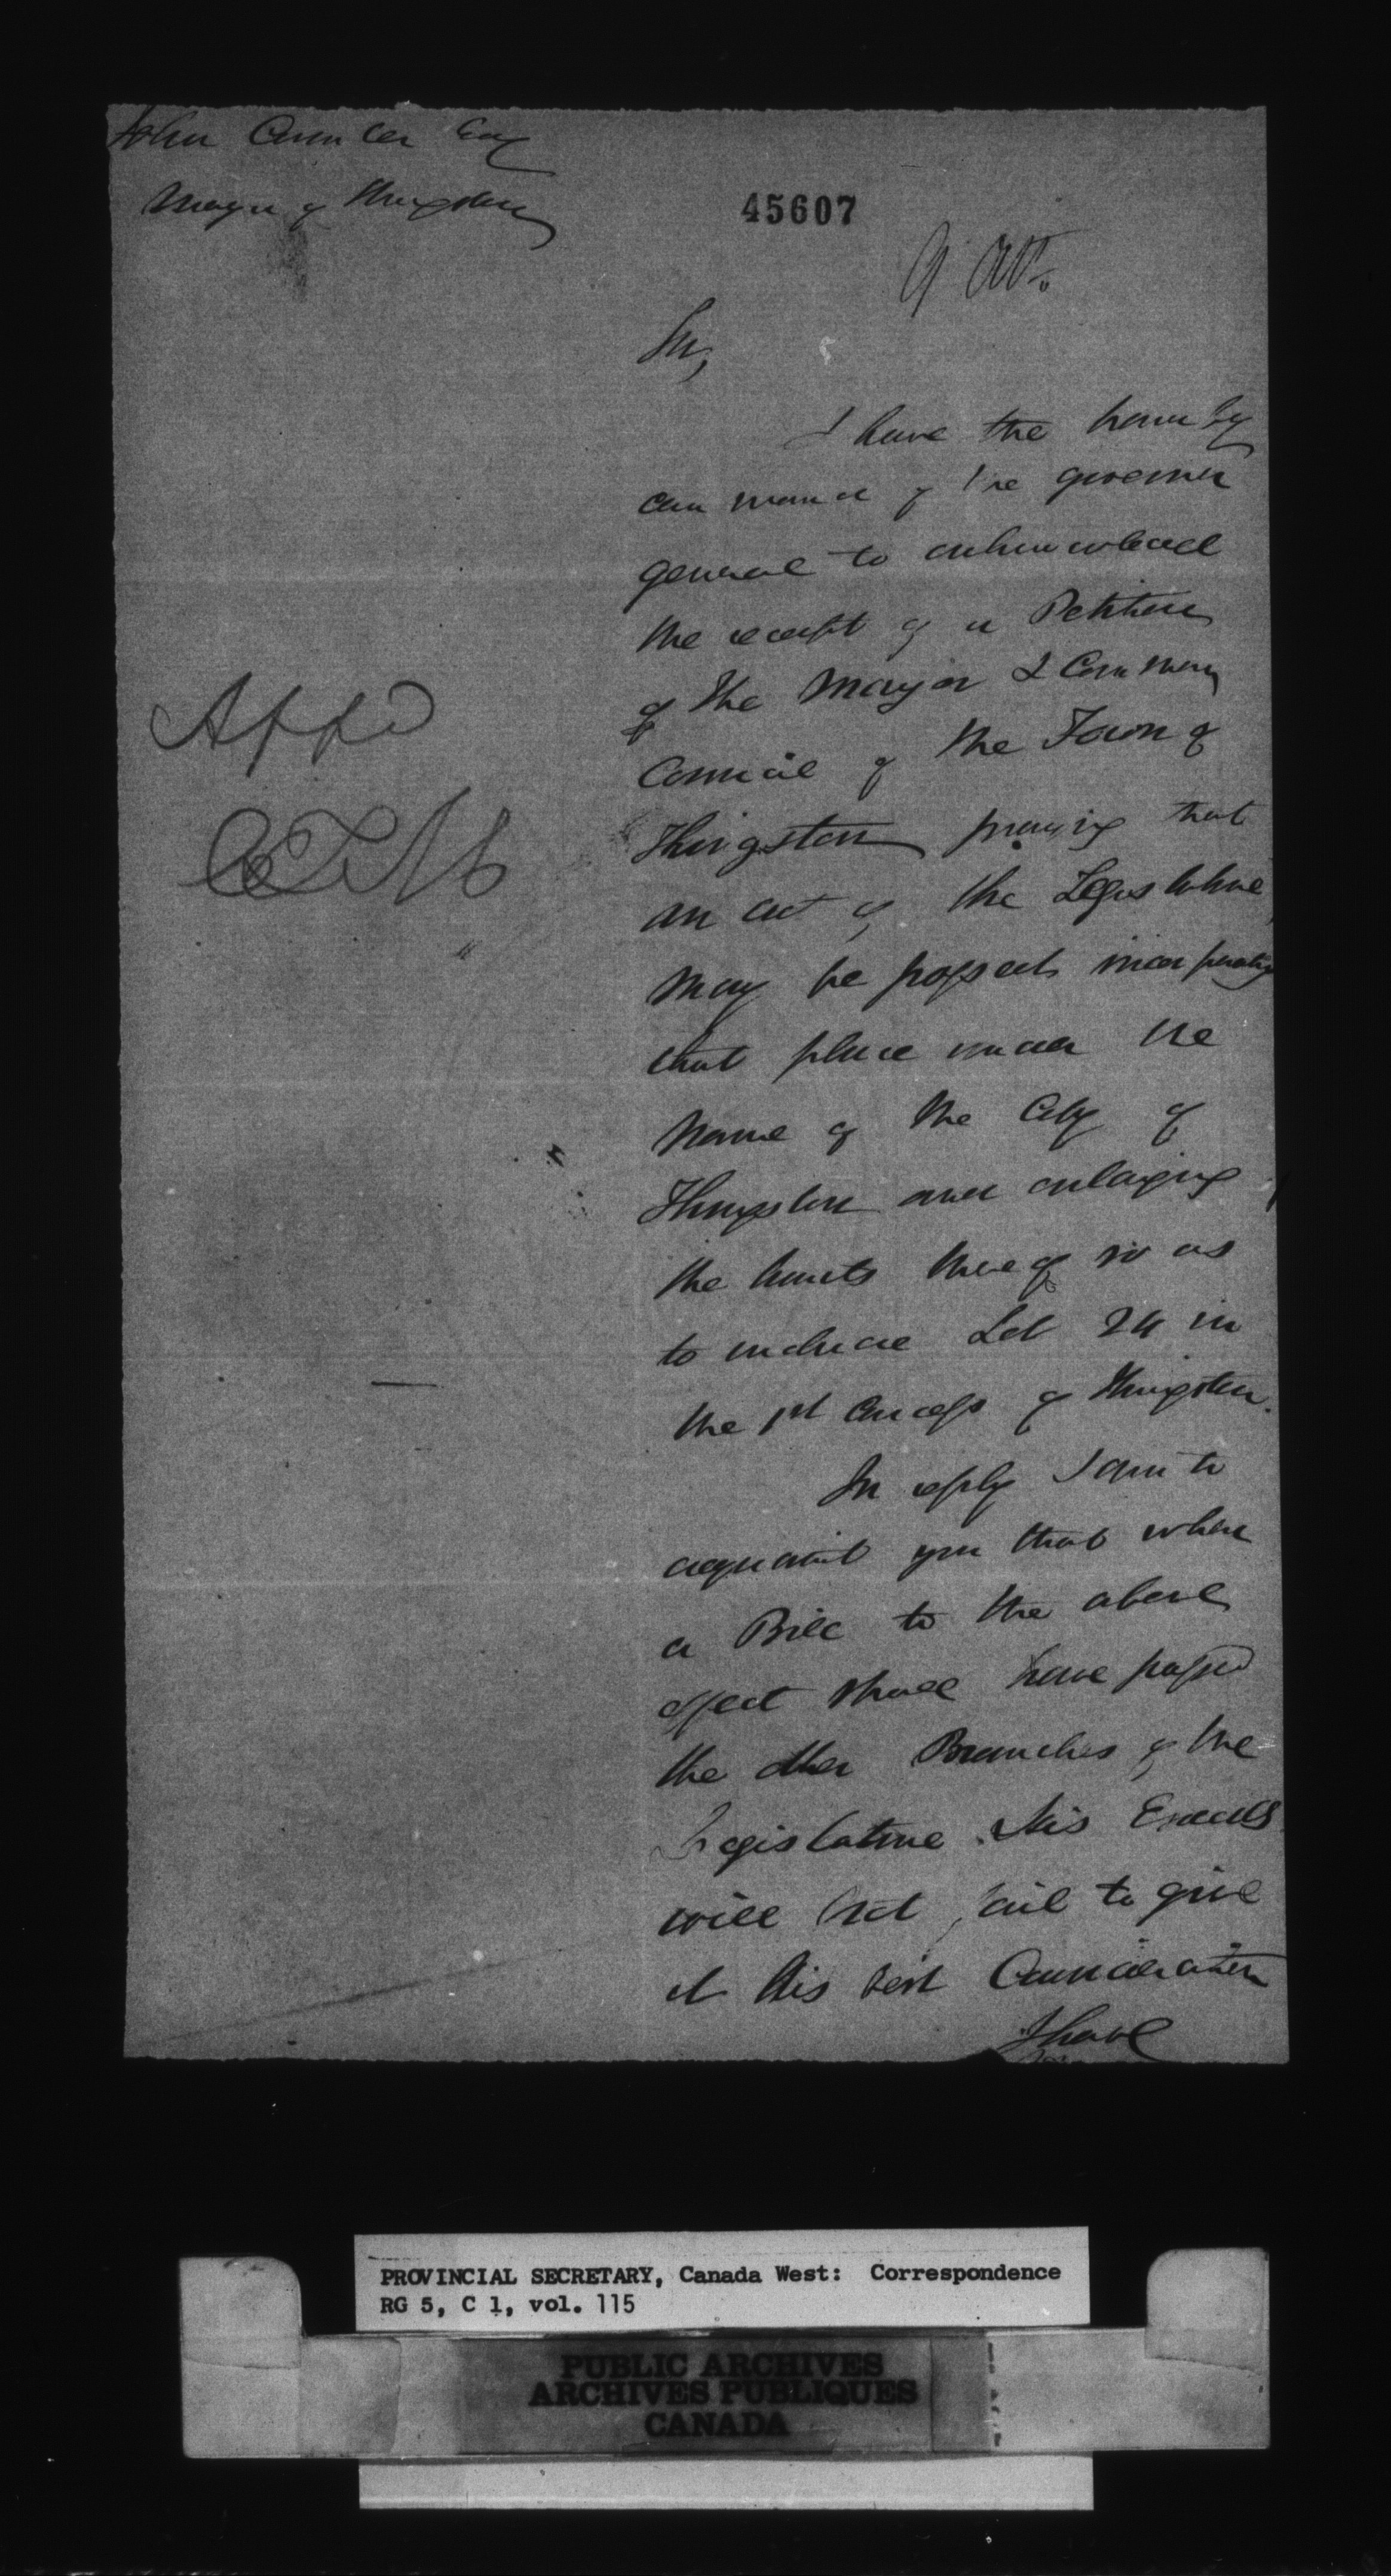 John Counter Esq
Mayor of Kingston
45607
9 Oct.
Sir,
I have the honor by
command of the Governor
General to acknowledge
the receipt of a Petition
of the Mayor & Common
Council of the Town of
Kingston praying that
an act of the Legislature
may be passed incorporating
that place under the
name of the City of
Kingston and enlarging
the limits thereof so as
to include Lot 24 in
the 1st Concess of Kingston.
In reply I am to
acquaint you that when
a Bill to the above
effect shall have passed
the other Branches of the
Legislature His Excell
will not fail to give
it his best Consideration
I have
Appd
PROVINCIAL SECRETARY, Canada West: Correspondence
RG 5, C 1, vol. 115
PUBLIC ARCHIVES
ARCHIVES PUBLIQUES
CANADA